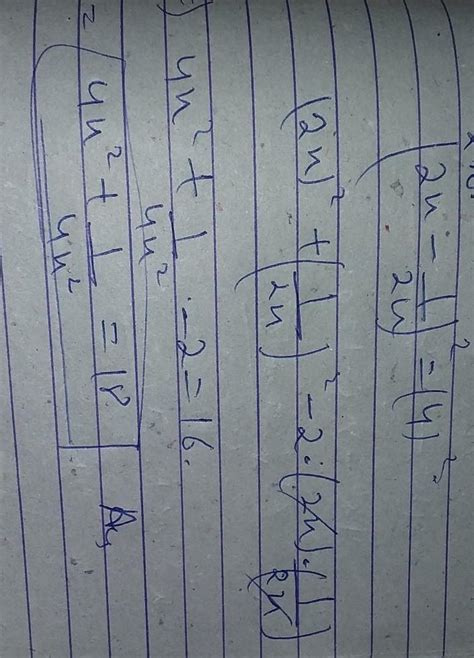 (2x - 1/2x)² = (4)²
(2x)² + (1/2x)² - 2·(2x)·(1/2x)
4x² + 1/4x² - 2 = 16.
= 4x² + 1/4x² = 18 As